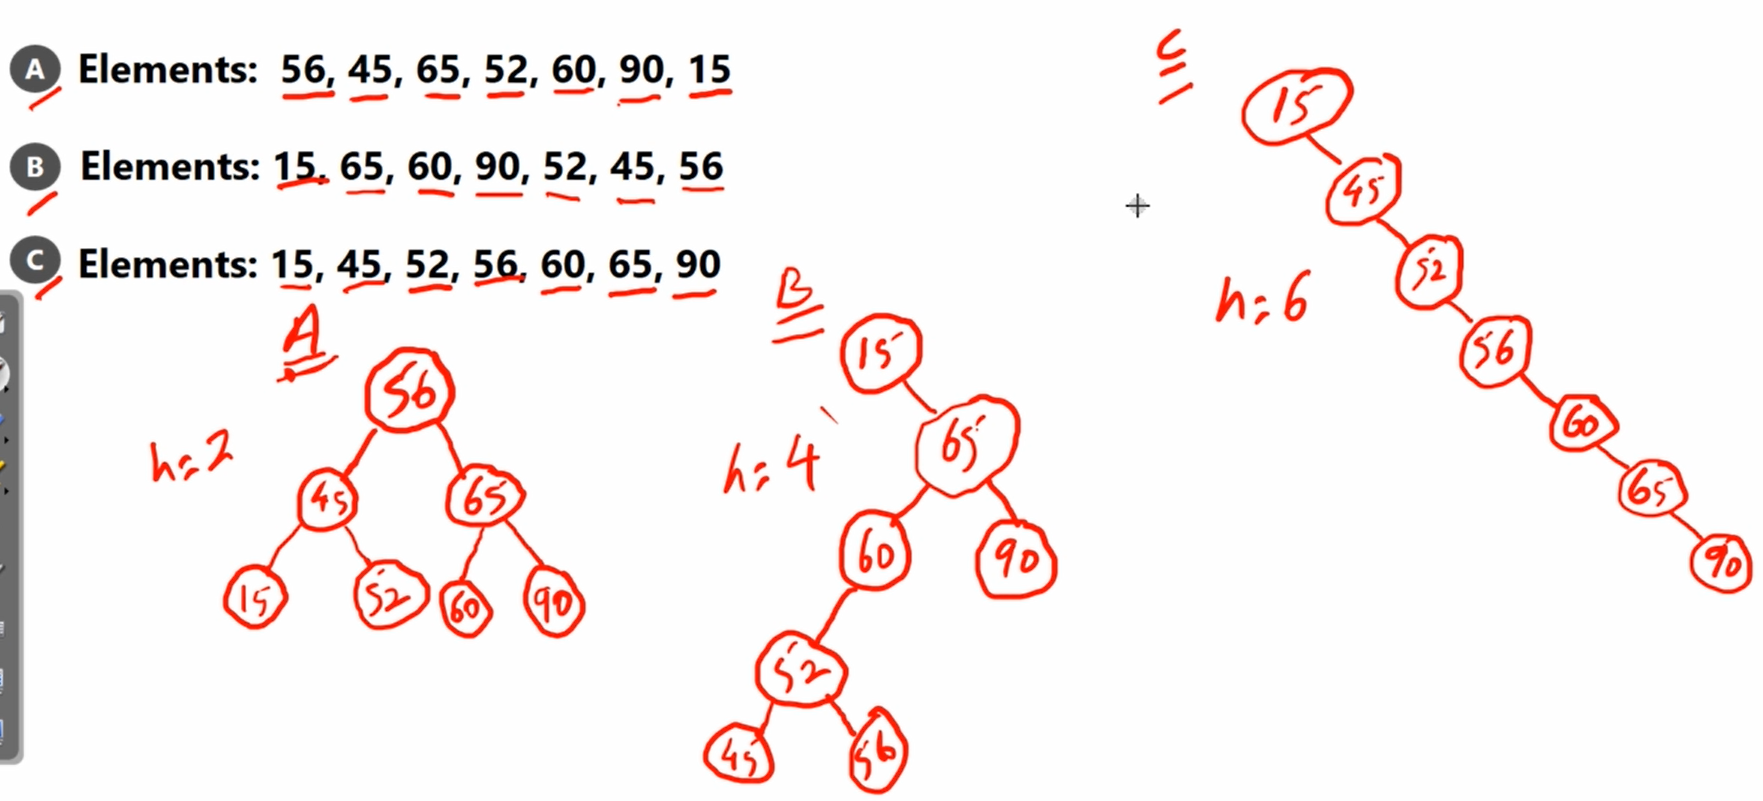 A Elements: 56, 45, 65, 52, 60, 90, 15
B Elements: 15, 65, 60, 90, 52, 45, 56
C Elements: 15, 45, 52, 56, 60, 65, 90
A
h=2
56
45 65
15 52 60 90
B
h=4
15
65
60 90
52
45 56
C
h=6
15
45
52
56
60
65
90